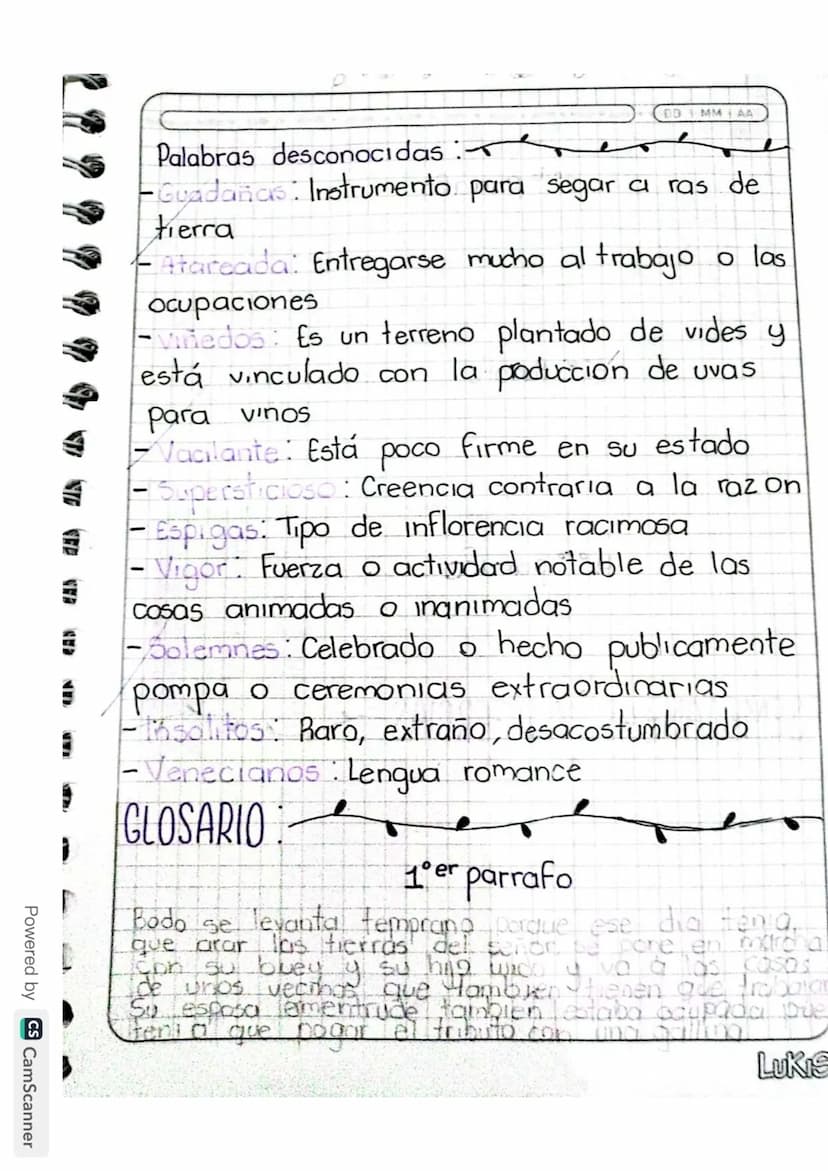 DD MM AA
Palabras desconocidas :
- Guadañas: Instrumento para segar a ras de
tierra
- Atareada: Entregarse mucho al trabajo o las
ocupaciones
- Viñedos: Es un terreno plantado de vides y
está vinculado con la poducción de uvas
para vinos
- Vacilante: Está poco firme en su estado
- Supersticioso: Creencia contraria a la razon
- Espigas: Tipo de inflorencia racimosa
- Vigor: Fuerza o actividad notable de las
cosas animadas o inanimadas
- Solemnes: Celebrado o hecho publicamente
pompa o ceremonias extraordinarias
- Insolitos: Raro, extraño, desacostumbrado
- Venecianos: Lengua romance
GLOSARIO:
1°er parrafo
Bodo se levanta temprano porque ese dia tenia
que arar las tierras del señor se pone en marcha
con su buey y su hijo y va a las casas
de unos vecinos que tambien tienen que trabajar
Su esposa ementrude tambien estaba ocupada
tenia que pagar el tributo con una gallina
LUKIS
Powered by CS CamScanner